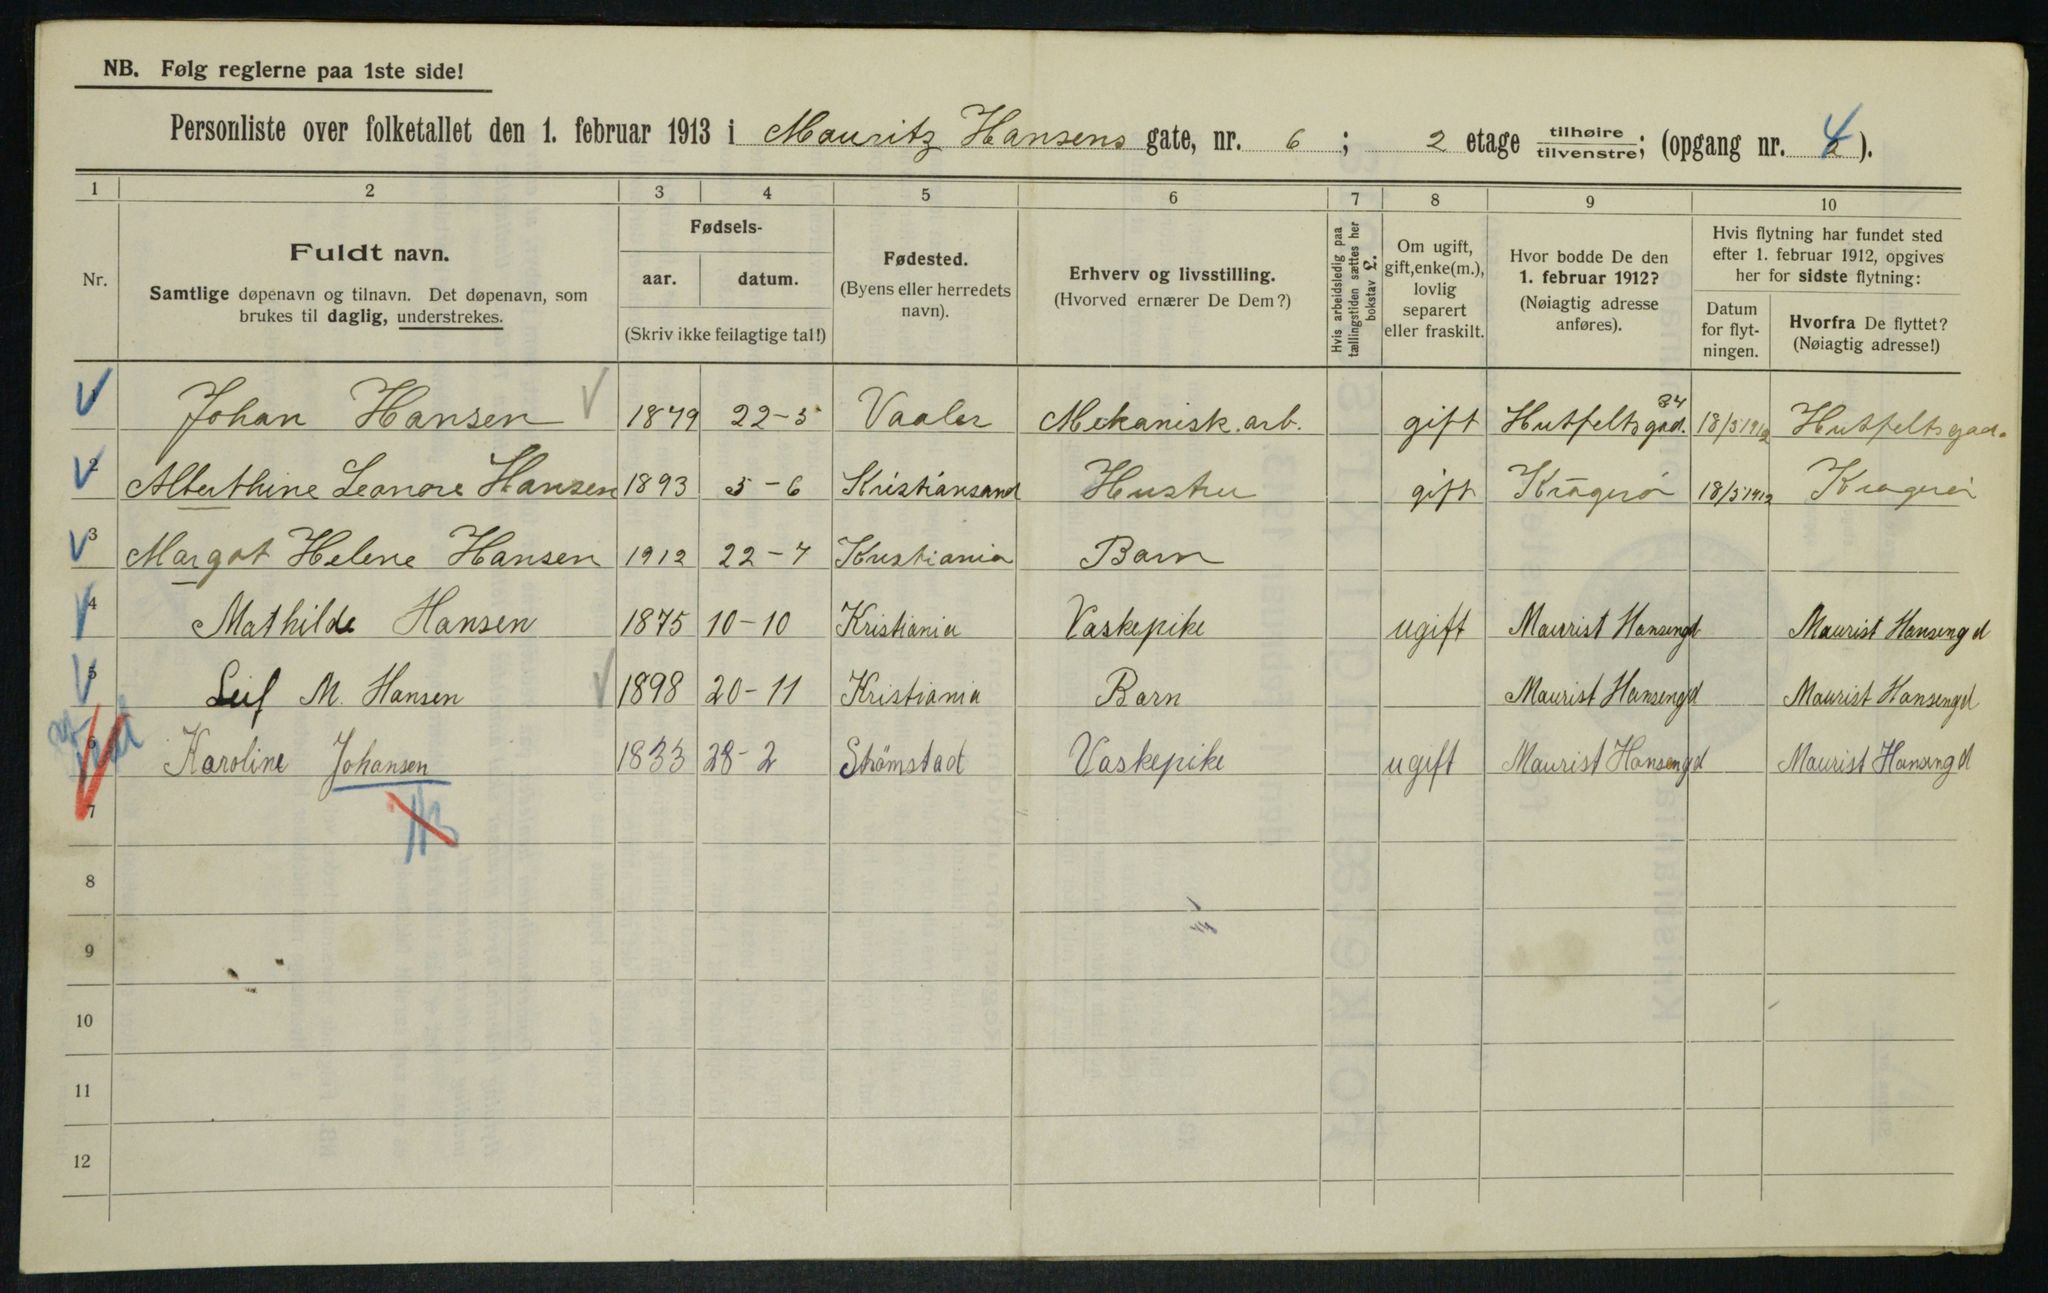 NB. Følg reglerne paa 1ste side!
Personliste over folketallet den 1. februar 1913 i Mauritz Hansens gate, nr. 6 ; 2 etage tilhøire tilvenstre; (opgang nr. 4).
1 2 3 4 5 6 7 8 9 10
Nr.
Fuldt navn.
Samtlige døpenavn og tilnavn. Det døpenavn, som
brukes til daglig, understrekes.
Fødsels-
aar. datum.
(Skriv ikke feilagtige tal!)
Fødested.
(Byens eller herredets
navn).
Erhverv og livsstilling.
(Hvorved ernærer De Dem?)
Hvis arbeidsledig paa
tællingstiden sættes her
bokstav L.
Om ugift,
gift, enke(m.),
lovlig
separert
eller fraskilt.
Hvor bodde De den
1. februar 1912?
(Nøiagtig adresse
anføres).
Hvis flytning har fundet sted
efter 1. februar 1912, opgives
her for sidste flytning:
Datum
for flyt-
ningen.
Hvorfra De flyttet?
(Nøiagtig adresse!)
1 Johan Hansen 1879 22-5 Vaaler Mekanisk. arb. gift Hutfeltsgad. 34 18/5 1912 Hutfeltsgad.
2 Alberthine Leonore Hansen 1893 5-6 Kristiansand Hustru gift Kragerø 18/5 1912 Kragerø
3 Margot Helene Hansen 1912 22-7 Kristiania Barn
4 Mathilde Hansen 1875 10-10 Kristiania Vaskepike ugift Maurist Hansengd Maurist Hansengd
5 Leif M. Hansen 1898 20-11 Kristiania Barn Maurist Hansengd Maurist Hansengd
6 Karoline Johansen 1833 28-2 Strømstad Vaskepike ugift Maurist Hansengd Maurist Hansengd
7
8
9
10
11
12